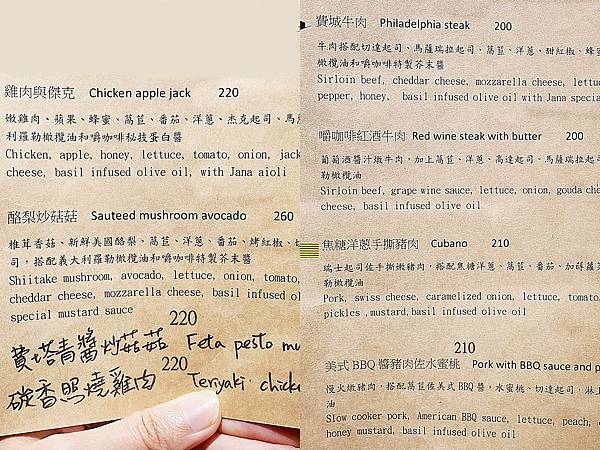 雞肉與傑克 Chicken apple jack 220
嫩雞肉、蘋果、蜂蜜、萵苣、番茄、洋蔥、杰克起司、馬
利羅勒橄欖油和嚼咖啡秘技蛋白醬
Chicken, apple, honey, lettuce, tomato, onion, jack
cheese, basil infused olive oil, with Jana aioli
酪梨炒菇菇 Sauteed mushroom avocado 260
椎茸香菇、新鮮美國酪梨、萵苣、洋蔥、番茄、烤紅椒、
司，搭配義大利羅勒橄欖油和嚼咖啡特製芥末醬
Shiitake mushroom, avocado, lettuce, onion, tomato,
cheddar cheese, mozzarella cheese, basil infused
special mustard sauce
220
費塔青醬炒菇菇 Feta pesto
220
碳香照燒雞肉 Teriyaki
費城牛肉 Philadelphia steak 200
牛肉搭配切達起司、馬薩瑞拉起司、萵苣、洋蔥、甜紅椒、
橄欖油和嚼咖啡特製芥末醬
Sirloin beef, cheddar cheese, mozzarella cheese,
pepper, honey, basil infused olive oil with Jana
嚼咖啡紅酒牛肉 Red wine steak with butter 200
葡萄酒醬汁燉牛肉，加上萵苣、洋蔥、高達起司、馬薩瑞拉起
勒橄欖油
Sirloin beef, grape wine sauce, lettuce, onion, gouda
cheese, basil infused olive oil
焦糖洋蔥手撕豬肉 Cubano 210
瑞士起司佐手撕嫩豬肉，搭配焦糖洋蔥、萵苣、番茄、加
勒橄欖油
Pork, swiss cheese, caramelized onion, lettuce, tomato,
pickles ,mustard,basil infused olive oil
210
美式 BBQ 醬豬肉佐水蜜桃 Pork with BBQ sauce and
慢火燉豬肉，搭配萵苣佐美式 BBQ 醬，水蜜桃、切達起司，淋上
油
Slow cooker pork, American BBQ sauce, lettuce, peach,
honey mustard, basil infused olive oil